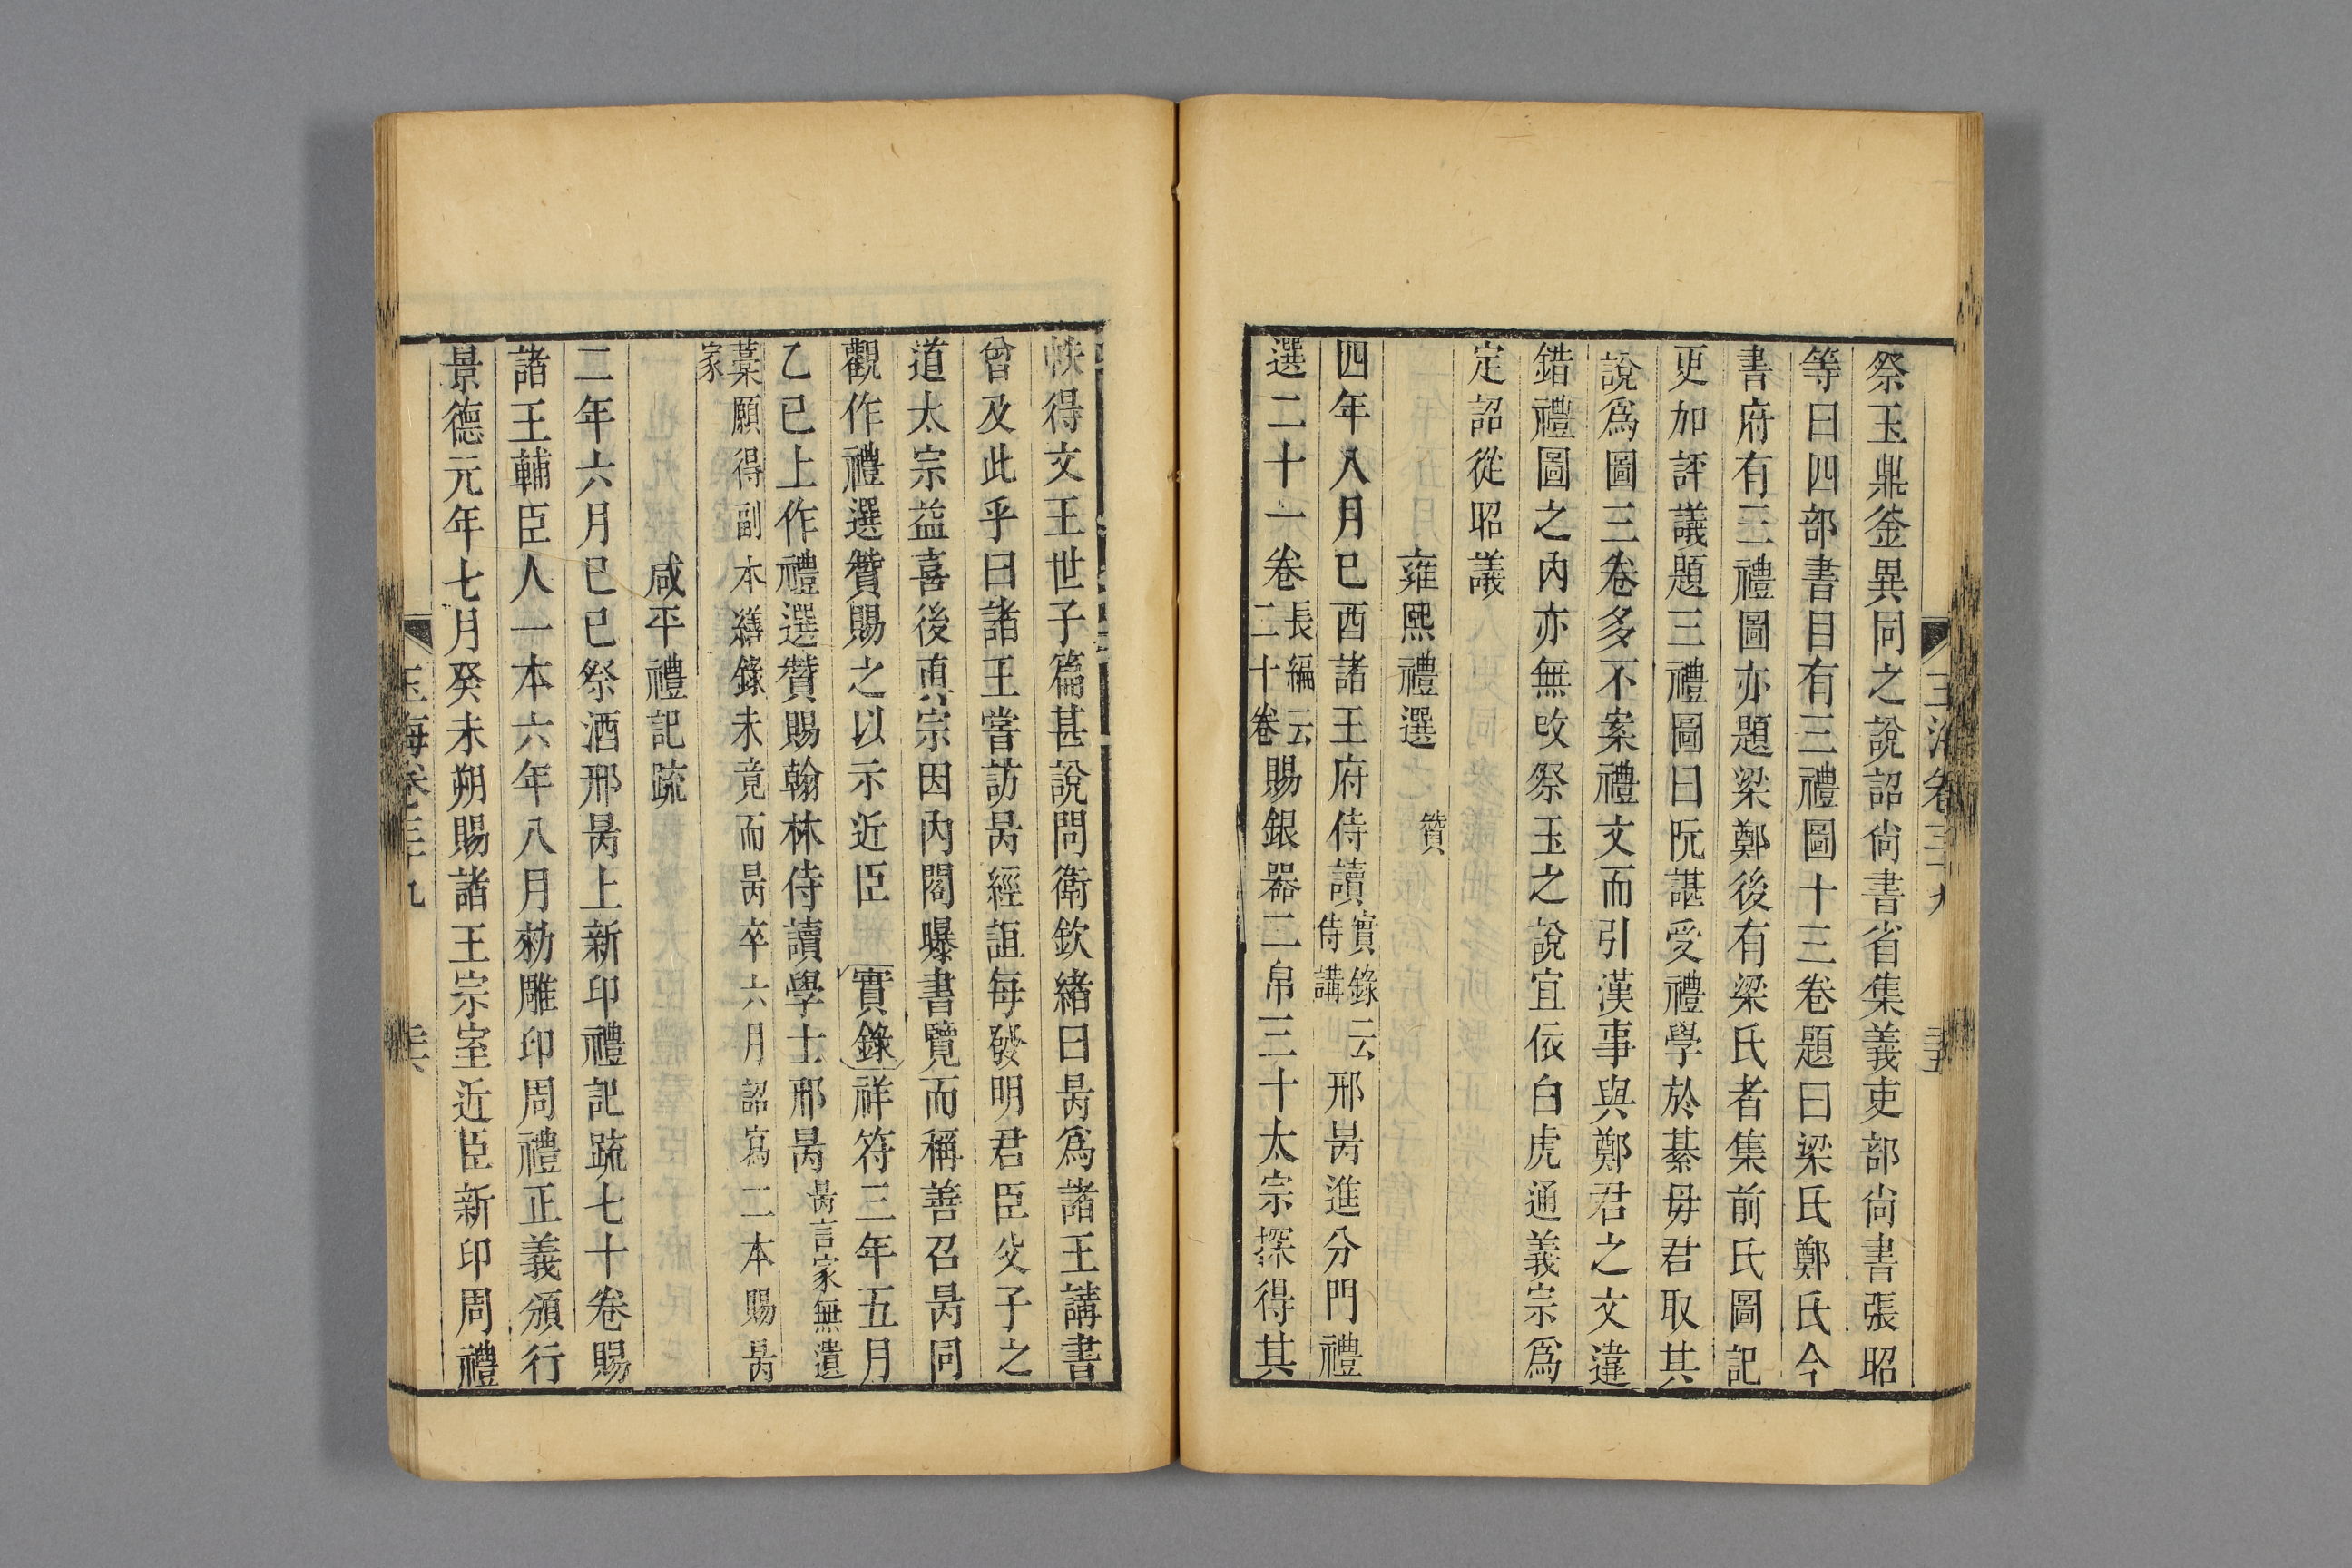 祭玉鼎釜異同之說詔尙書省集義吏部尙書張昭
等曰四部書目有三禮圖十三卷題曰梁氏鄭氏今
書府有三禮圖亦題梁鄭後有梁氏者集前氏圖記
更加評議題三禮圖曰阮諶受禮學於綦毋君取其
說爲圖三卷多不案禮文而引漢事與鄭君之文違
錯禮圖之內亦無改祭玉之說宜依白虎通義宗爲
定詔從昭議
雍熙禮選 贊
四年八月己酉諸王府侍讀實錄云侍講邢昺進分門禮
選二十一卷長編云二十卷賜銀器二帛三十太宗探得其
帙得文王世子篇甚說問衛欽緒曰昺爲諸王講書
曾及此乎曰諸王嘗訪昺經誼每發明君臣父子之
道太宗益喜後眞宗因內閣曝書覽而稱善召昺同
觀作禮選贊賜之以示近臣 實錄祥符三年五月
乙巳上作禮選贊賜翰林侍讀學士邢昺昺言家無遺
藁願得副本繕錄未竟而昺卒六月詔寫二本賜昺
家
咸平禮記疏
二年六月己巳祭酒邢昺上新印禮記疏七十卷賜
諸王輔臣人一本六年八月勑雕印周禮正義頒行
景德元年七月癸未朔賜諸王宗室近臣新印周禮
玉海卷三十九